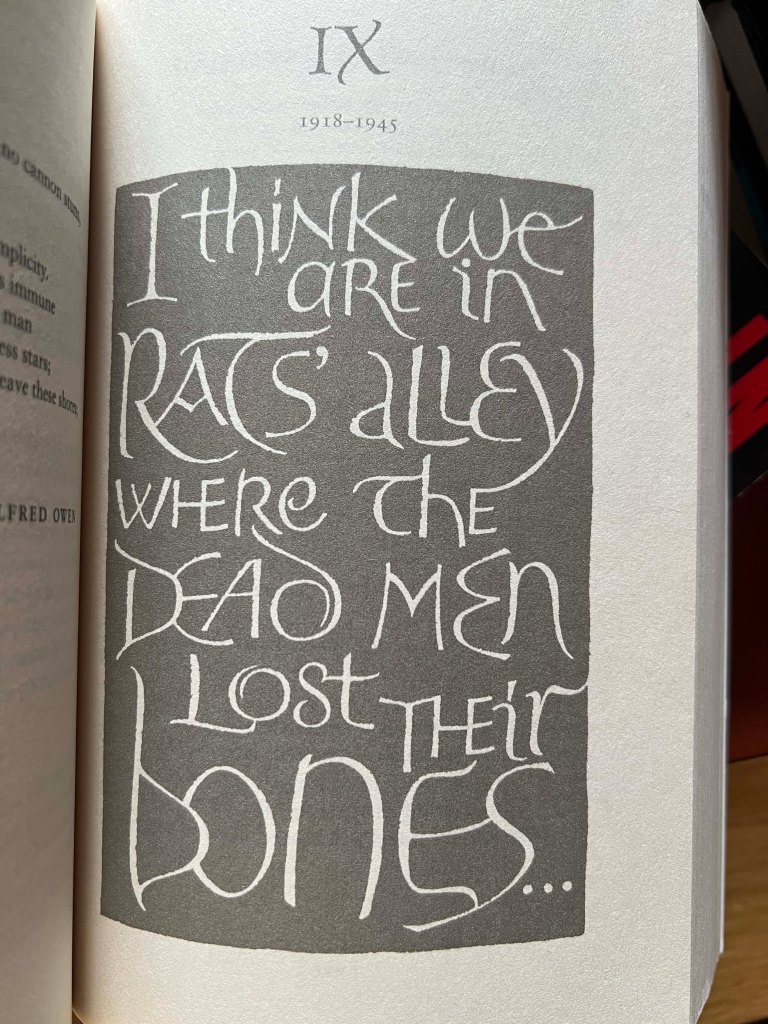 no cannon stuns,
mplicity.
s immune
man
ess stars;
eave these shores;
LFRED OWEN
IX
1918–1945
I think we
are in
RATS' alley
WHERE The
DEAD MEN
Lost THEir
bones...